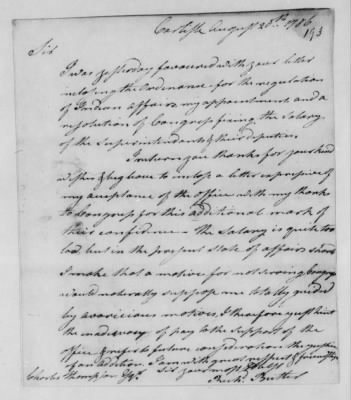 Carlisle August 28th 1786
193
Sir
I was yesterday favoured with your letter
inclosing the Ordinance for the regulation
of Indian affairs, my appointment and a
resolution of Congress fixing the Salary
of the Superintendants & their deputies
I return you thanks for your kind
wishes & beg leave to inclose a letter expressive of
my acceptance of the Office with my thanks
to Congress for this additional mark of
their confidence — the Salary is quite too
low, but in the present state of affairs should
I make that a motive for not serving Congress
would naturally suppose me totally guided
by avaricious motives, I therefore
the inadequacy of pay to the support of the
office & refer to future consideration the
of an addition. I am with great respect & friendship
Sir your most
Charles Thompson Esqr. Richd. Butler